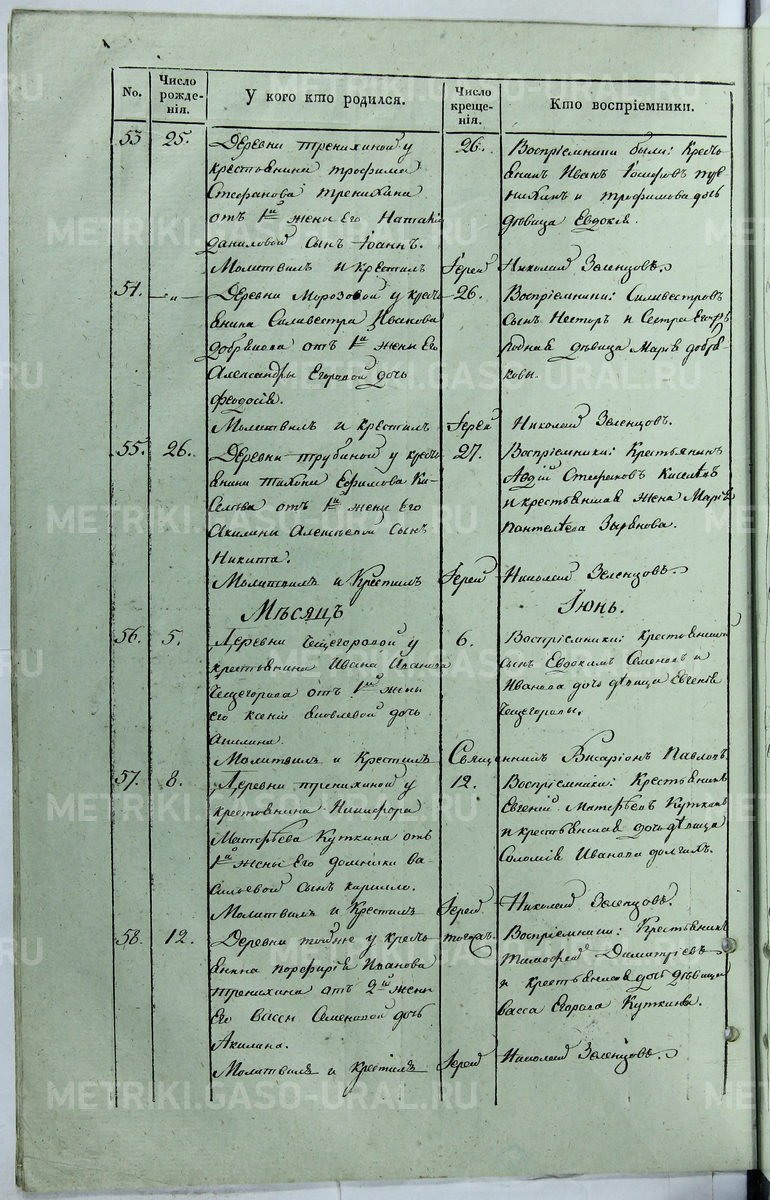 No.
Число рожде-нія.
У кого кто родился.
Число креще-нія.
Кто воспріемники.
53
25.
Деревни Тренихиной у
крестьянина Трофима
Стефанова Тренихина
отъ 1й жены его Наталіи
Даниловой сынъ Іоаннъ.
26.
Воспріемники были: Кресть
янинъ Иванъ
и Трофимова дочь
дѣвица Евдокія.
Молитвилъ и крестилъ Іерей Николай Зеленцовъ.
54.
—„—
Деревни Морозовой у кресть
янина Силивестра Иванова
отъ 1й жены его
Александры Егоровой дочь
Феодосія.
26.
Воспріемники: Силивестровъ
сынъ Несторъ и сестра его
родная дѣвица Марія
Молитвилъ и крестилъ Іерей Николай Зеленцовъ.
55.
26.
Деревни Трубиной у кресть
янина Тихона Ефимова Ки-
селева отъ 1й жены его
Акилины Алексѣевой сынъ
Никита.
27.
Воспріемники: Крестьянинъ
Авдій Стефановъ Киселевъ
и крестьянская жена Марія
Пантелѣева Зырянова.
Молитвилъ и Крестилъ Іерей Николай Зеленцовъ.
Мѣсяцъ Іюнь.
56.
5.
Деревни Чещегоровой у
крестьянина Ивана Иванова
Чещегорова отъ 1й жены
его Ксеніи Яковлевой дочь
Акилина.
6.
Воспріемники: крестьянскій
сынъ Евдокимъ Семеновъ и
Иванова дочь дѣвица Евгенія
Чещегоровы.
Молитвилъ и Крестилъ Священникъ Висаріонъ Павловъ.
57.
8.
Деревни Тренихиной у
крестьянина Никифора
Матвѣева Куткина отъ
1й жены его Домники Ва-
сильевой сынъ Кирилло.
12.
Воспріемники: Крестьянинъ
Евгеній Матвѣевъ Куткинъ
и крестьянская дочь дѣвица
Соломія Иванова Долгихъ.
Молитвилъ и Крестилъ Іерей Николай Зеленцовъ.
58.
12.
Деревни тойже у кресть
янина Порфирія Иванова
Тренихина отъ 2й жены
его Вассы Семеновой дочь
Акилина.
тогожъ.
Воспріемники: Крестьянинъ
Тимофей Димитріевъ
и крестьянская дочь дѣвица
Васса Егорова Куткина.
Молитвилъ и Крестилъ Іерей Николай Зеленцовъ.
METRIKI.GASO-URAL.RU